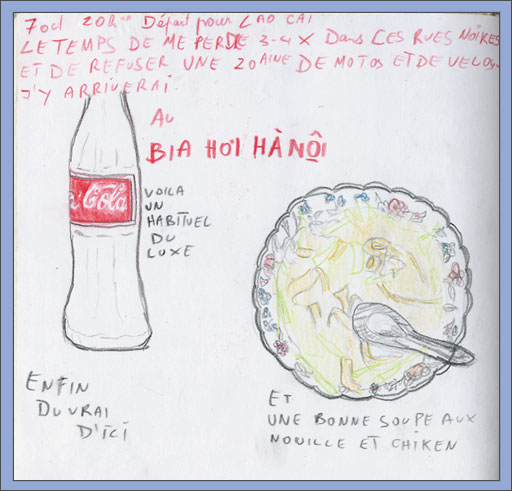 7 oct 20h00 Départ pour LAO CAI
LE TEMPS DE ME PERDRE 3-4 X DANS LES RUES NOIRES
ET DE REFUSER UNE 20AINE DE MOTOS ET DE VELOS
J'Y ARRIVERAI.
AU
BIA HƠI HÀ NỘI
Cola
VOILA
UN
HABITUEL
DU
LUXE
ENFIN
DU VRAI
D'ICI
ET
UNE BONNE SOUPE AUX
NOUILLE ET CHIKEN